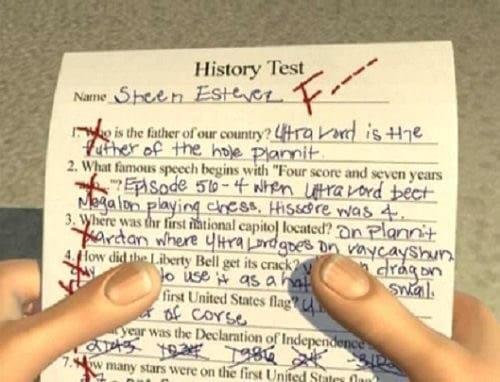 History Test
Name Sheen Estevez F----
1. Who is the father of our country? Ultra Lord is the
futher of the hole plannit.
2. What famous speech begins with "Four score and seven years
"? Episode 56-4 when Ultra Lord beet
Megalon playing chess. His score was 4.
3. Where was thr first national capitol located? On Plannit
where Ultra Lord goes on vaycayshun
4. How did the Liberty Bell get its crack? dragon
to use it as a hat snail.
first United States flag? U.
of corse
year was the Declaration of Independence
7. How many stars were on the first United States flag